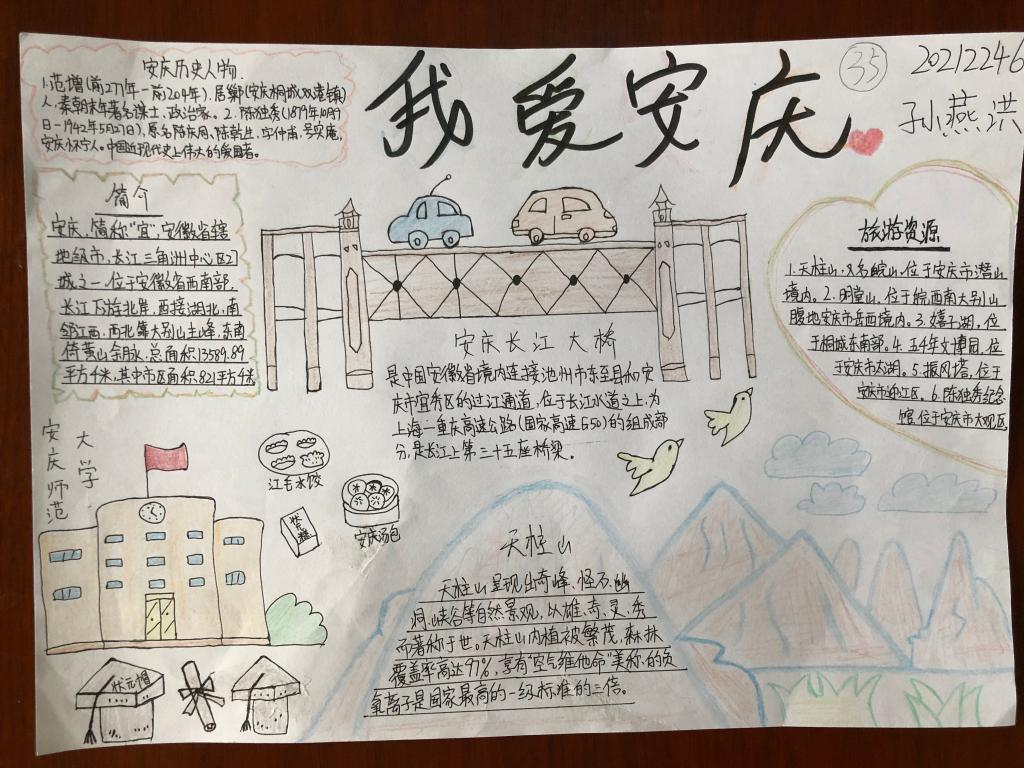 我爱安庆
35
20212246
孙燕洪
安庆历史人物
1.范增(前277年-前204年),居鄛(安庆桐城双港镇)
人,秦朝末年著名谋士、政治家。2.陈独秀(1879年10月9
日-1942年5月27日),原名陈庆同、陈乾生,字仲甫,号实庵,
安庆怀宁人。中国近现代史上伟大的爱国者。
简介
安庆,简称"宜",安徽省辖
地级市,长江三角洲中心区27
城之一,位于安徽省西南部,
长江下游北岸,西接湖北,南
邻江西,西北靠大别山主峰,东南
倚黄山余脉,总面积13589.89
平方千米,其中市区面积821平方千米
旅游资源
1.天柱山,又名皖山,位于安庆市潜山
境内。2.明堂山,位于皖西南大别山
腹地安庆市岳西境内。3.嬉子湖,位
于桐城东南部。4.五千年文博园,位
于安庆市太湖。5.振风塔,位于
安庆市迎江区。6.陈独秀纪念
馆,位于安庆市大观区
安庆长江大桥
是中国安徽省境内连接池州市东至县和安
庆市宜秀区的过江通道,位于长江水道之上,为
上海—重庆高速公路(国家高速G50)的组成部
分,是长江上第三十五座桥梁。
安庆师范
大学
江毛水饺
安庆汤包
状元糕
状元帽
天柱山
天柱山呈现出奇峰、怪石、幽
洞、峡谷等自然景观,以雄、奇、灵、秀
而著称于世。天柱山内植被繁茂,森林
覆盖率高达97%,享有"空气维他命"美称的负
氧离子是国家最高的一级标准的三倍。